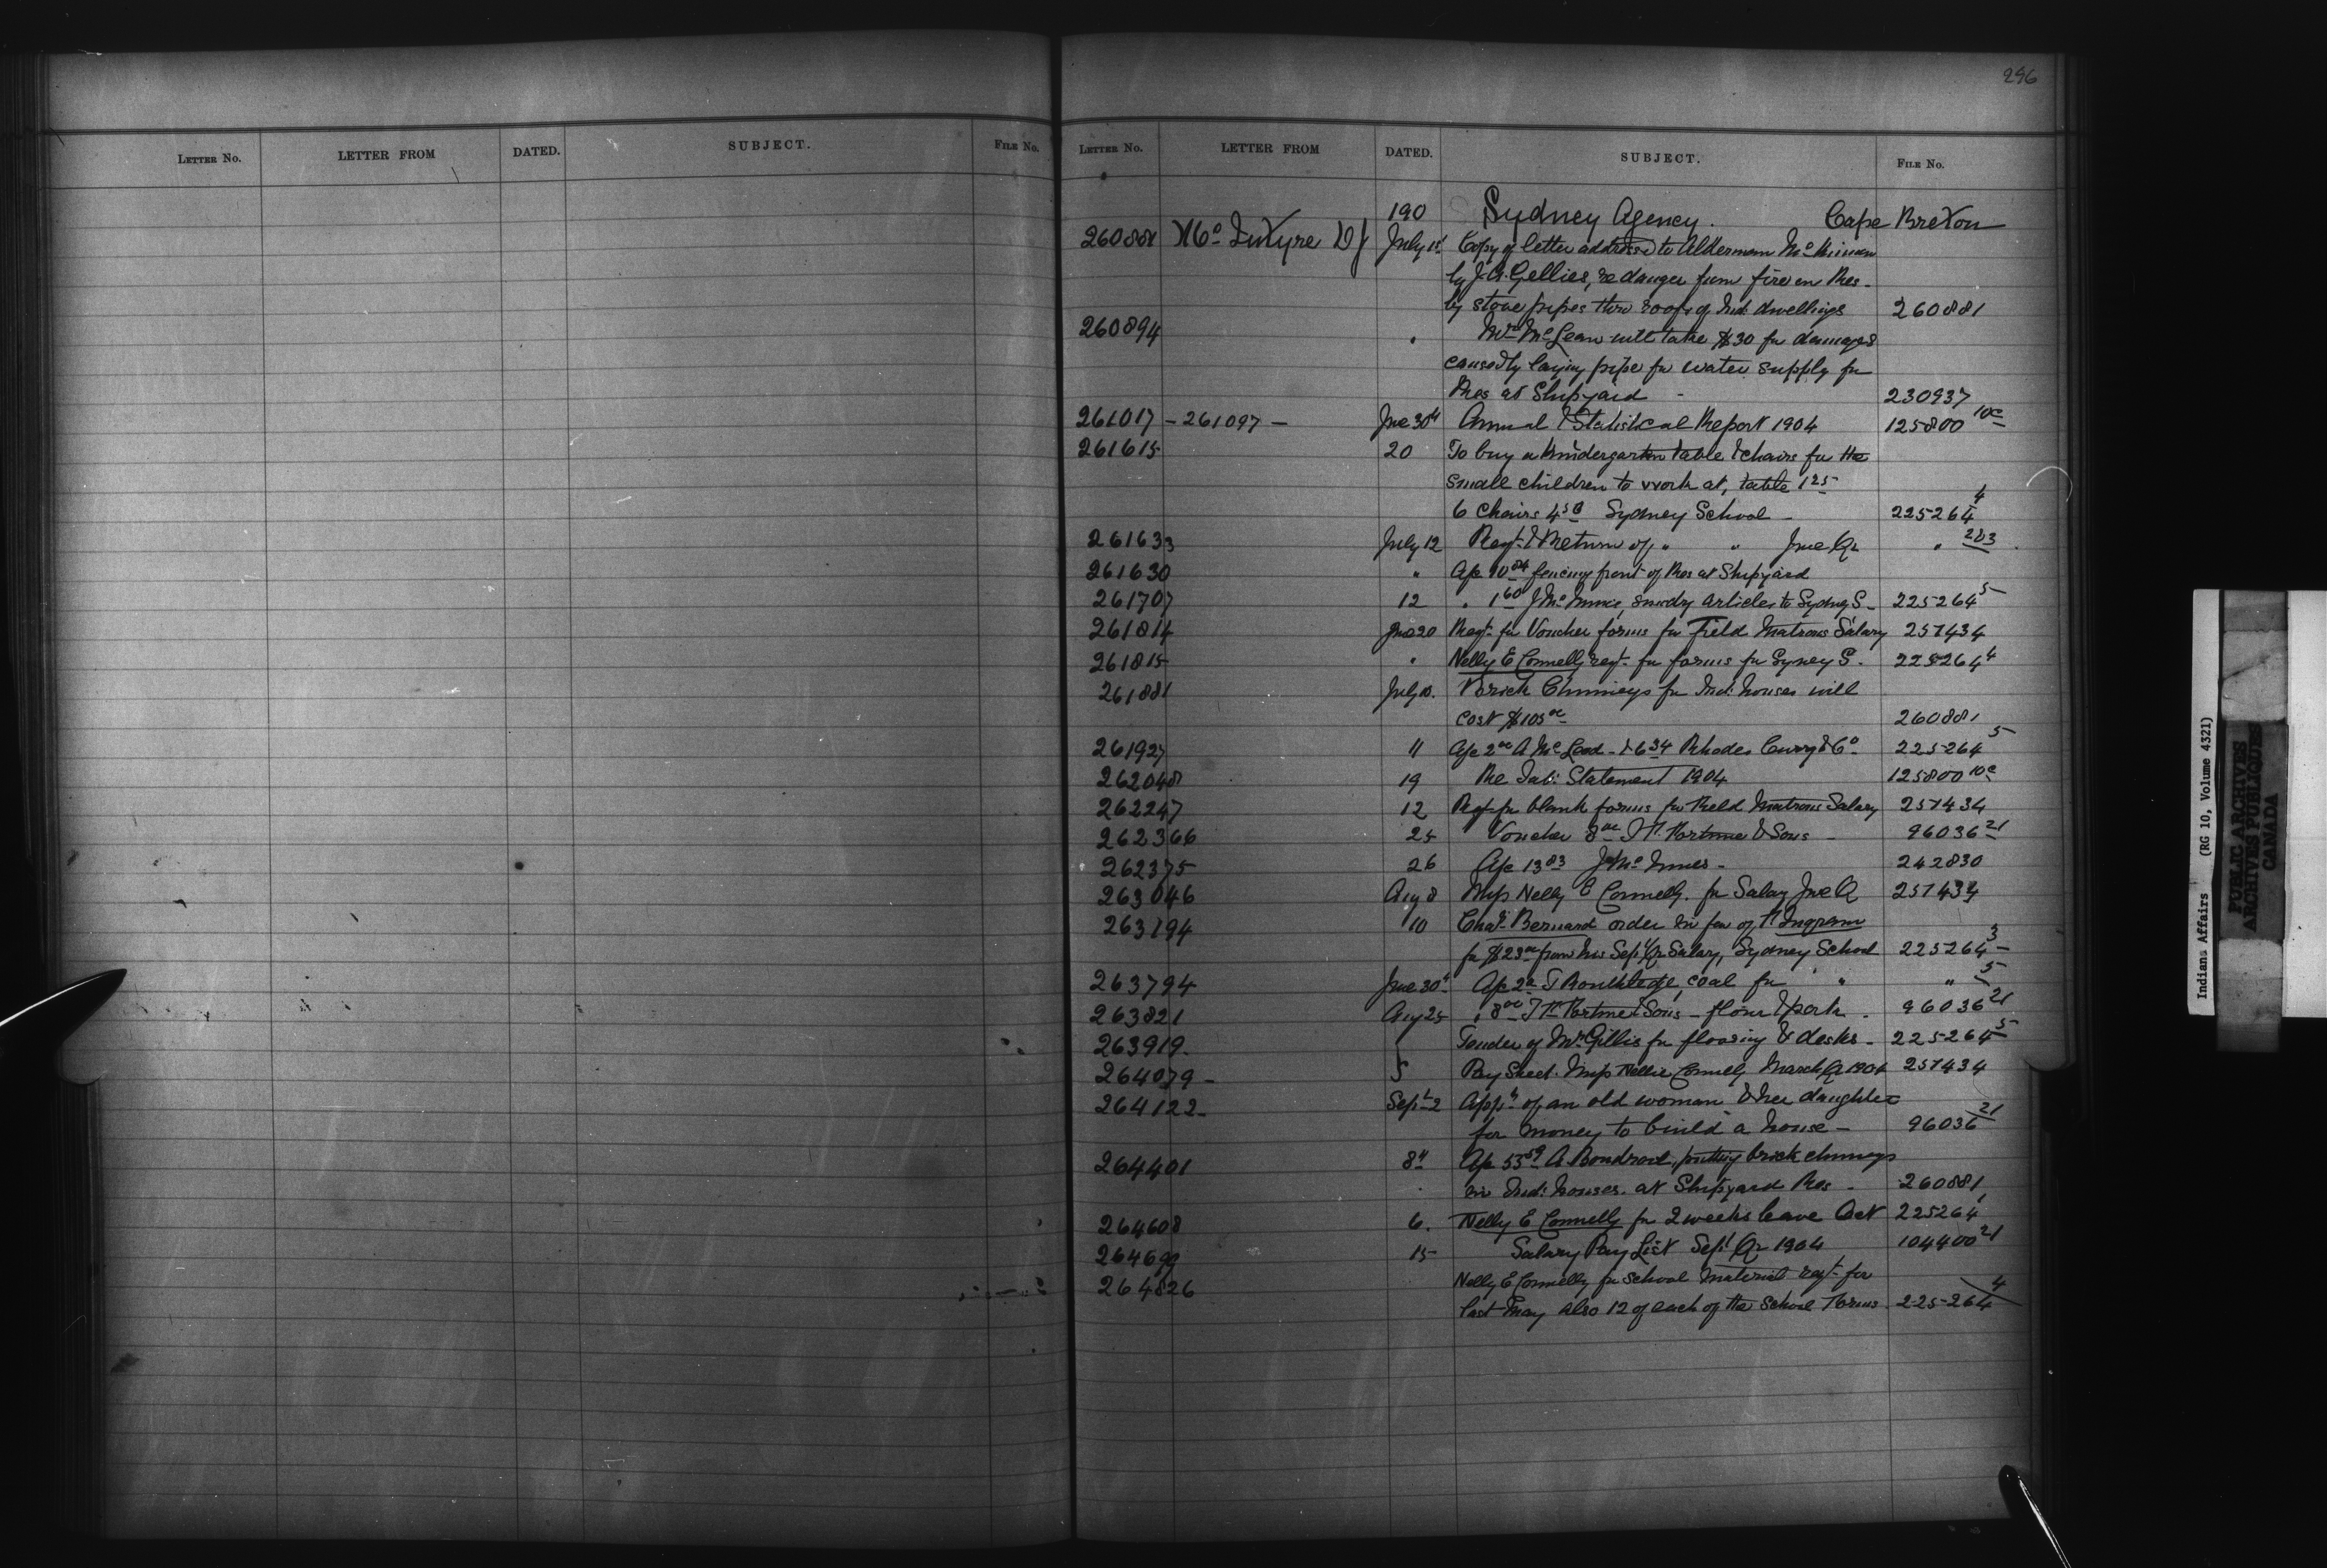 296
LETTER NO. LETTER FROM DATED. SUBJECT. FILE NO.
LETTER NO. LETTER FROM DATED. SUBJECT. FILE NO.
190 Sydney Agency. Cape Breton
260881 McIntyre DJ July 1st Copy of letter addressed to Alderman
by J.A. Gellies, re danger from fire on Res-
by stove pipes thro roofs of Ind: dwellings 260881
260894 " Mr McLean will take $30 for damages
caused by laying pipe for water supply for
Res at Shipyard - 230937
261017 - 261097 - Jne 30th Annual & Statistical Report 1904 125800 10c
261615 20 To buy a Kindergarten table & chairs for the
small children to work at, table 1 25
6 Chairs 4 50 Sydney School - 225264 4
261633 July 12 Reqt & Return of " " Jne Qr " 2&3
261630 " a/c 90 fencing front of Res at Shipyard
261707 12 " 1 60 J McInnis, sundry articles to Sydney S- 225264 5
261814 Jne 20 Reqt for Voucher forms for Field Matrons Salary 257434
261815 " Nelly E Connelly reqt for forms for Syney S. 225264 4
261881 July 10. Brick Chimneys for Ind: houses will
cost $105 oo 260881
261927 11 a/c 2 oo A McLeod - & 6 34 Rhodes Curry & Co 225264 5
262048 19 Re Tab: Statement 1904 125800 10c
262247 12 Reqt for blank forms for Field Matrons Salary 257434
262366 25 Voucher 8 oo & Sons - 96036 21
262375 26 a/c 13 83 J McInnes - 242830
263046 Aug 8 Miss Nelly E Connelly. for Salary Jne Q 257434
263194 10 Chas Bernard order in fav of Ingram
for $23 oo from his Sept Qr Salary, Sydney School 225264 3
263794 Jne 30th Ap 2 T Routhledge, coal for " " " 5
263821 Aug 25 " 8 oo & Sons - flour & pork. 96036 21
263919. Tender of Mr Gillis for flooring & desks - 225264 5
264079 - 5 Pay Sheet. Miss Nellie Connelly March Q 1904 257434
264122 - Sept 2 Appn of an old woman & her daughter
for money to build a house - 96036 21
264401 8th Ap 53 59 A Boudrout, putting brick chimneys
in Ind: houses. at Shipyard Res - 260881
264608 6. Nelly E Connelly for 2 weeks leave Oct 225264
264699 15 Salary Pay List Sept Qr 1904 104400 21
264826 Nelly E Connelly for school material reqt for
last May also 12 of each of the School Forms 225264 4
Indians Affairs (RG 10, Volume 4321)
PUBLIC ARCHIVES
ARCHIVES PUBLIQUES
CANADA